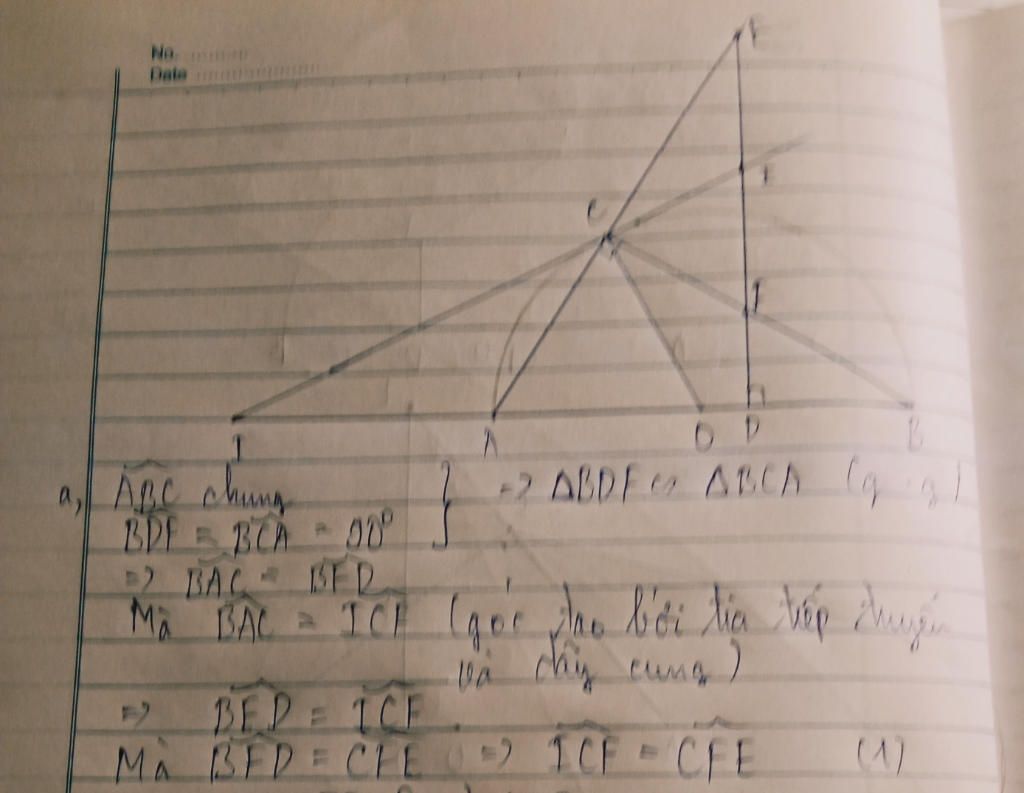 No.
Date
E
I
C
F
I
A
O
D
B
a, ABC chung
BDF = BCA = 90°
} => ΔBDF ∽ ΔBCA (g.g)
=> BAC = BFD
Mà BAC = ICF (góc tạo bởi tia tiếp tuyến
và dây cung)
=> BFD = ICF.
Mà BFD = CFE => ICF = CFE (1)